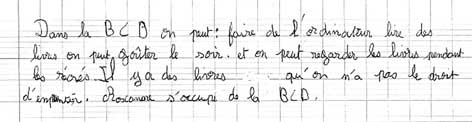 Dans la BCD on peut : faire de l'ordinateur lire des
livres on peut goûter le soir. et on peut regarder les livres pendant
les récrés. Il y a des livres qu'on n'a pas le droit
d'emprunter. s'occupe de la BCD.